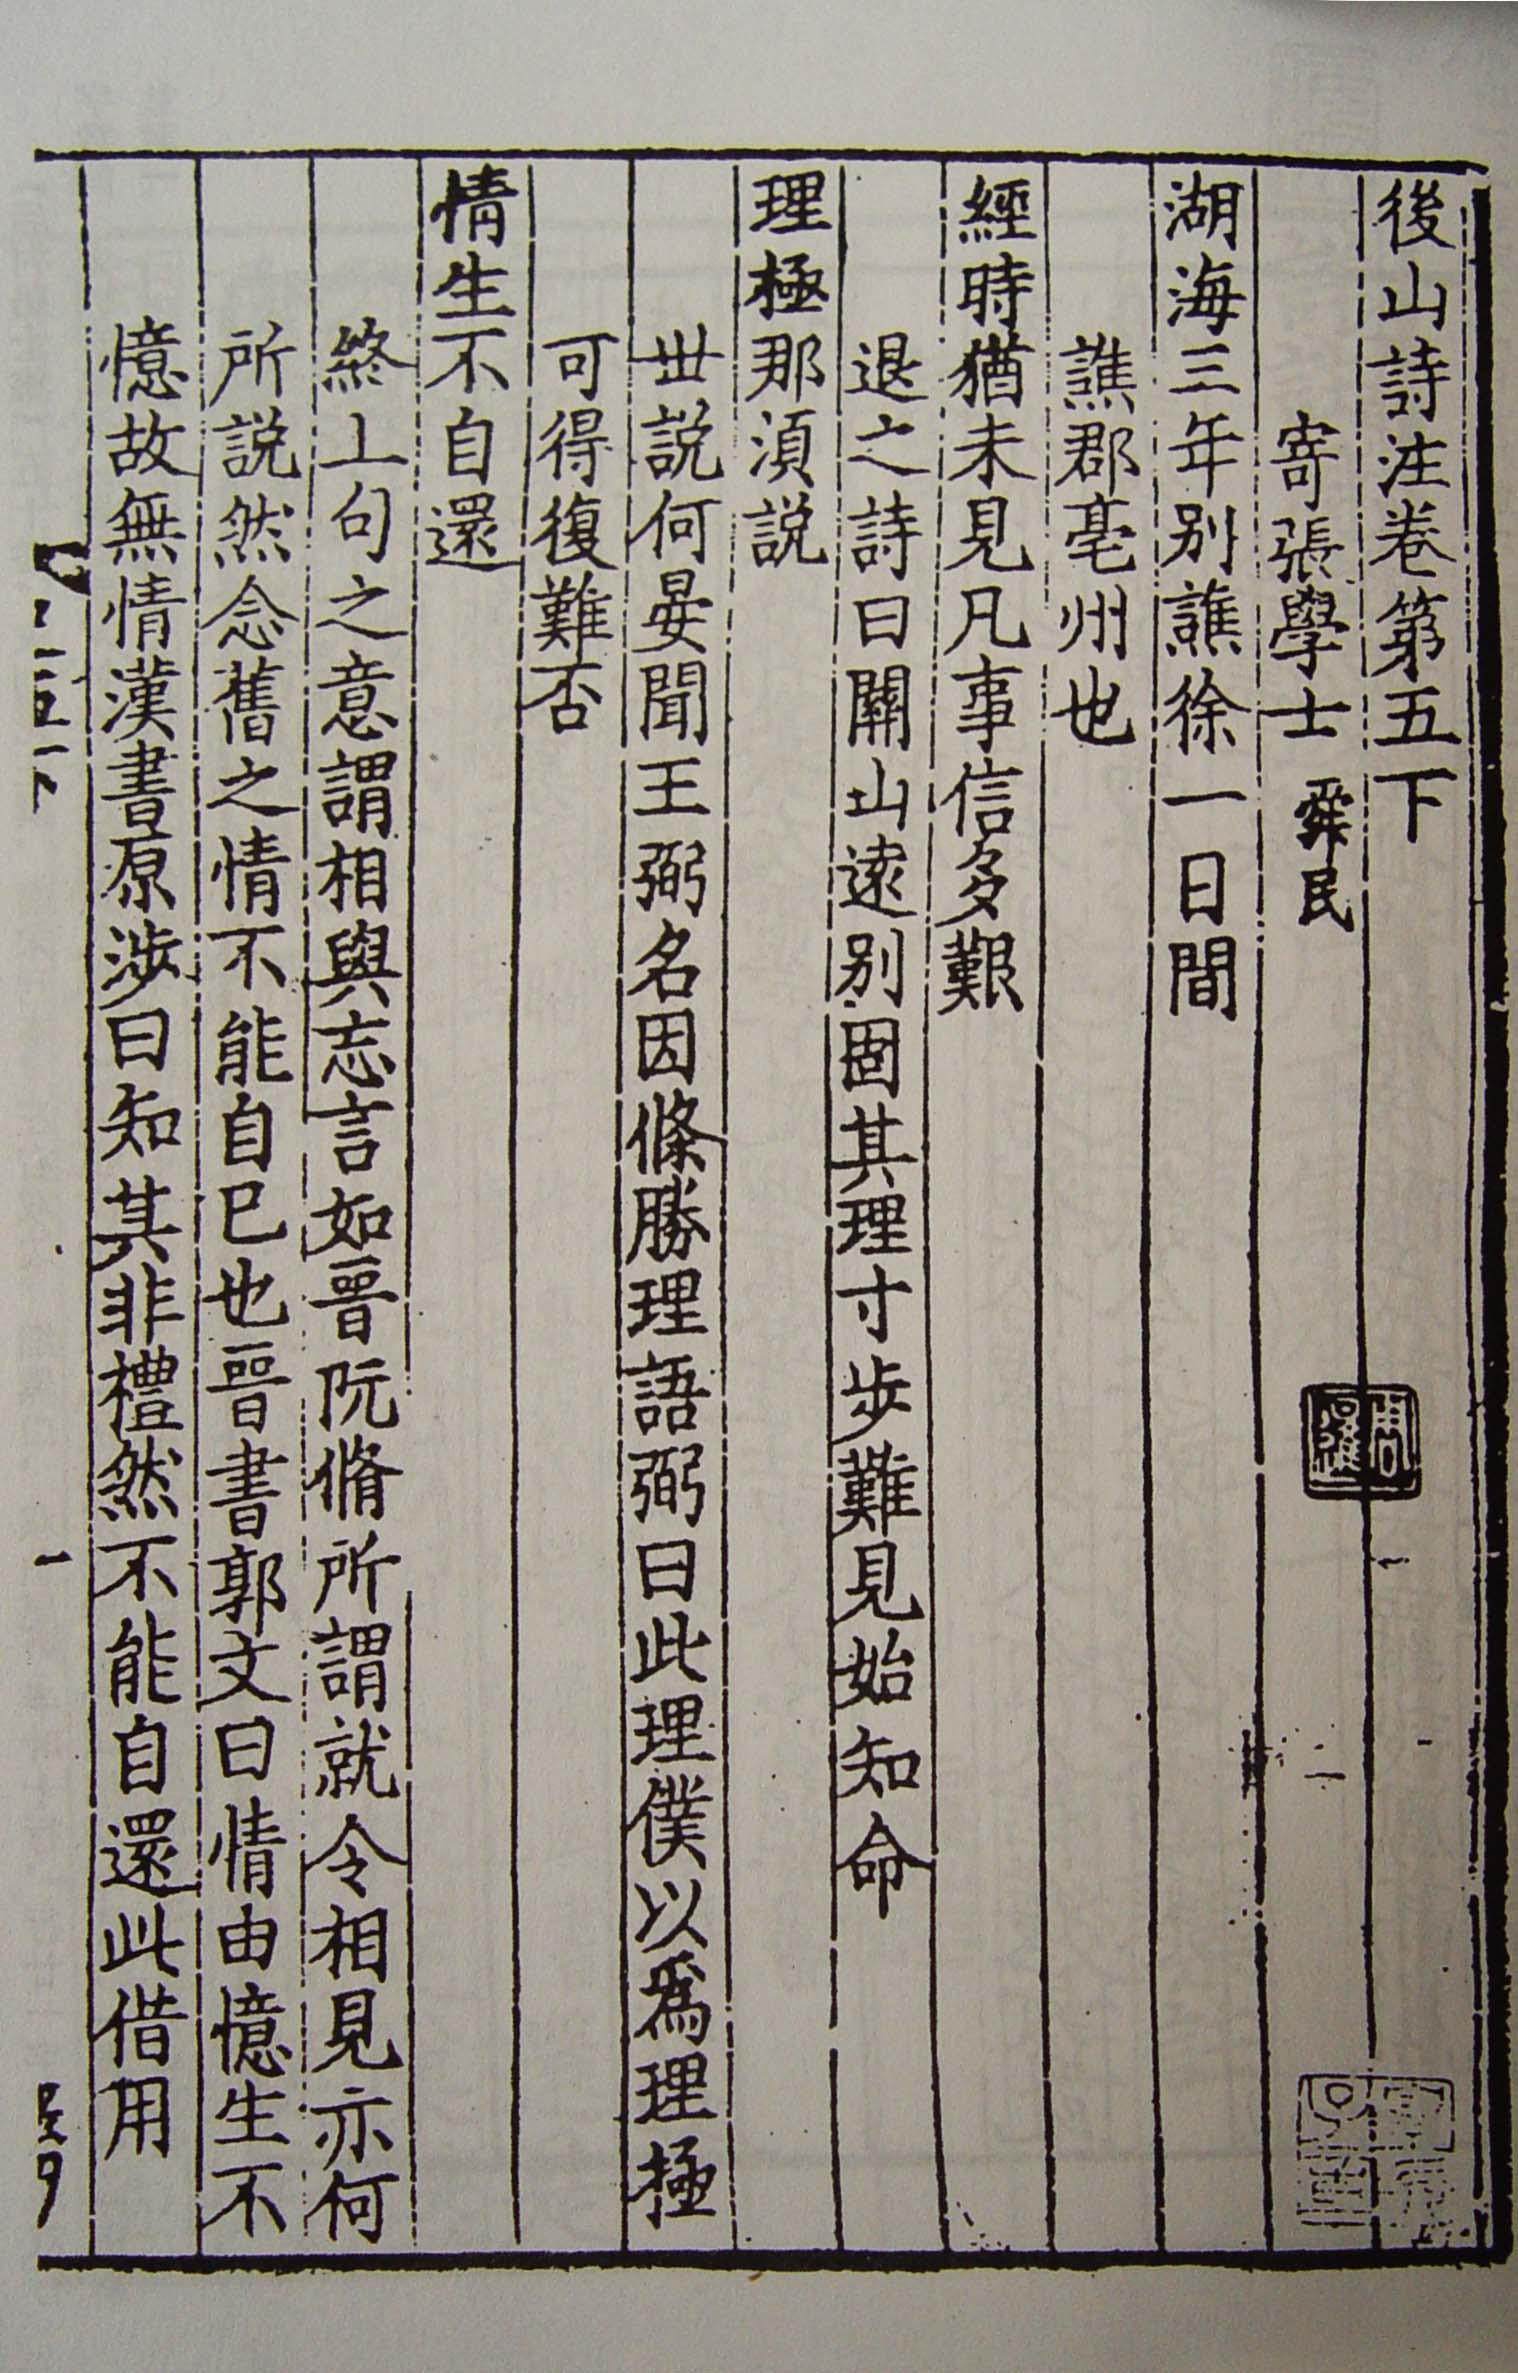 後山詩注卷第五下
寄張學士舜民
湖海三年别譙徐一日間
譙郡亳州也
經時猶未見凡事信多艱
退之詩曰關山遠别固其理寸步難見始知命
理極那湏説
丗説何晏聞王弼名因條勝理語弼曰此理僕以爲理極
可得復難否
情生不自還
終上句之意謂相與志言如晉阮脩所謂就令相見亦何
所説然念舊之情不能自已也晉書郭文曰情由憶生不
憶故無情漢書原渉曰知其非禮然不能自還此借用